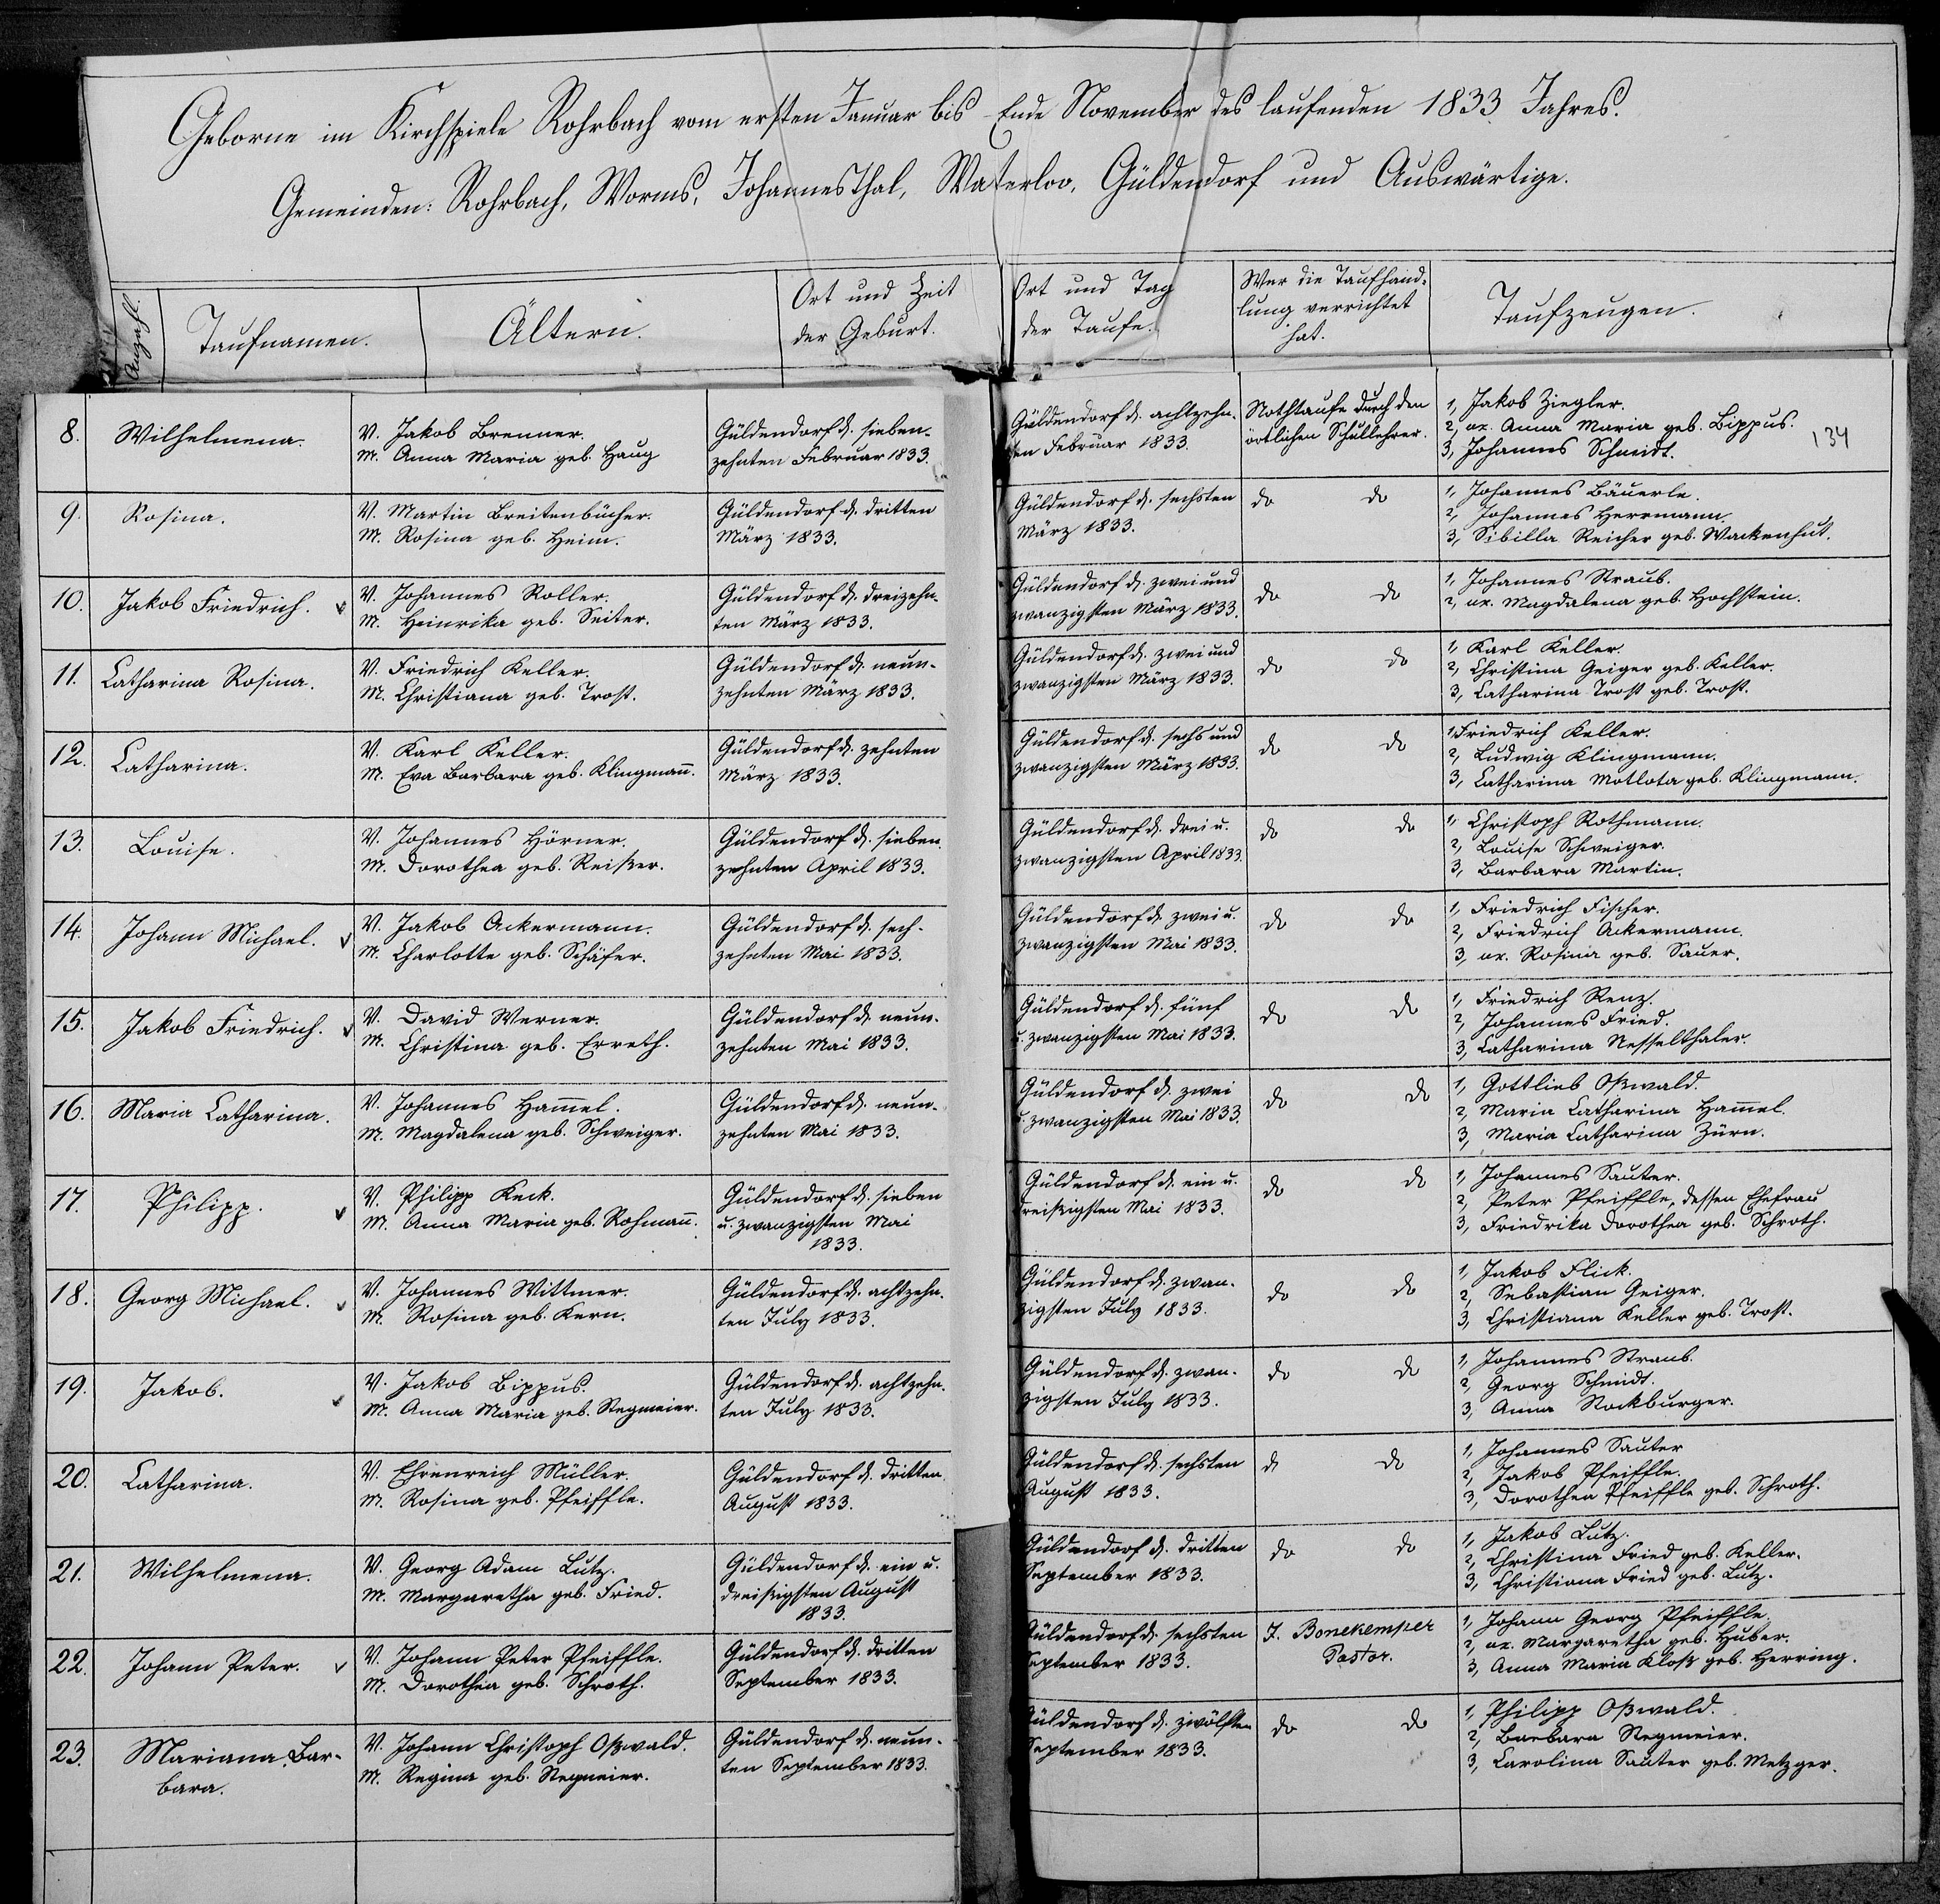 Geborne im Kirchspiele Rohrbach vom ersten Januar bis Ende November des laufenden 1833 Jahres.
Gemeinden: Rohrbach, Worms, Johannesthal, Waterloo, Güldendorf und Auswärtige.
Anzahl.
Taufnamen.
Ältern.
Ort und Zeit
der Geburt.
Ort und Tag
der Taufe.
Wer die Taufhand-
lung verrichtet
hat.
Taufzeugen.
134
8. Wilhelmena.
V. Jakob Brenner.
M. Anna Maria geb. Haug
Güldendorf d. sieben-
zehnten Februar 1833.
Güldendorf d. achtzehn-
ten Februar 1833.
Nothtaufe durch den
örtlichen Schullehrer.
1, Jakob Ziegler.
2, ux. Anna Maria geb. Bippus.
3, Johannes Schmidt.
9. Rosina.
V. Martin Breitenbücher.
M. Rosina geb. Heim.
Güldendorf d. dritten
März 1833.
Güldendorf d. sechsten
März 1833.
do do
1, Johannes Bäuerle.
2, Johannes Herrmann.
3, Sibilla Reicher geb. Wackenhut.
10. Jakob Friedrich.
V. Johannes Roller.
M. Heinrika geb. Seiter.
Güldendorf d. dreizehn-
ten März 1833.
Güldendorf d. zwei und
zwanzigsten März 1833.
do do
1, Johannes Straub.
2, ux. Magdalena geb. Hochstein.
11. Catharina Rosina.
V. Friedrich Keller.
M. Christiana geb. Trost.
Güldendorf d. neun-
zehnten März 1833.
Güldendorf d. zwei und
zwanzigsten März 1833.
do do
1, Karl Keller.
2, Christina Geiger geb. Keller.
3, Catharina Trost geb. Trost.
12. Catharina.
V. Karl Keller.
M. Eva Barbara geb. Klingman̄.
Güldendorf d. zehnten
März 1833.
Güldendorf d. sechs und
zwanzigsten März 1833.
do do
1, Friedrich Keller.
2, Ludwig Klingmann.
3, Catharina Motlota geb. Klingmann.
13. Louise.
V. Johannes Hörner.
M. Dorothea geb. Reißer.
Güldendorf d. sieben
zehnten April 1833.
Güldendorf d. drei u.
zwanzigsten April 1833.
do do
1, Christoph Rothmann.
2, Louise Schweiger.
3, Barbara Martin.
14. Johann Michael.
V. Jakob Ackermann.
M. Charlotte geb. Schäfer.
Güldendorf d. sech-
zehnten Mai 1833.
Güldendorf d. zwei u.
zwanzigsten Mai 1833.
do do
1, Friedrich Fischer.
2, Friedrich Ackermann.
3, ux. Rosina geb. Sauer.
15. Jakob Friedrich.
V. David Werner.
M. Christina geb. Erreth.
Güldendorf d. neun-
zehnten Mai 1833.
Güldendorf d. fünf
u. zwanzigsten Mai 1833.
do do
1, Friedrich Renz.
2, Johannes Fried.
3, Catharina Nesselthaler.
16. Maria Catharina.
V. Johannes Ham̄el.
M. Magdalena geb. Schweiger.
Güldendorf d. neun-
zehnten Mai 1833.
Güldendorf d. zwei
u. zwanzigsten Mai 1833.
do do
1, Gottlieb Oßwald.
2, Maria Catharina Ham̄el.
3, Maria Catharina Zürn.
17. Philipp.
V. Philipp Keck.
M. Anna Maria geb. Rohman̄.
Güldendorf d. sieben
u. zwanzigsten Mai
1833.
Güldendorf d. ein u.
dreißigsten Mai 1833.
do do
1, Johannes Sauter.
2, Peter Pfeiffle, dessen Ehefrau
3, Friedrika Dorothea geb. Schroth.
18. Georg Michael.
V. Johannes Wittmer.
M. Rosina geb. Kern.
Güldendorf d. achtzehn-
ten July 1833.
Güldendorf d. zwan-
zigsten July 1833.
do do
1, Jakob Flick.
2, Sebastian Geiger.
3, Christiana Keller geb. Trost.
19. Jakob.
V. Jakob Bippus.
M. Anna Maria geb. Stegmeier.
Güldendorf d. achtzehn-
ten July 1833.
Güldendorf d. zwan-
zigsten July 1833.
do do
1, Johannes Straub.
2, Georg Schmidt.
3, Anna Stockburger.
20. Catharina.
V. Ehrenreich Müller.
M. Rosina geb. Pfeiffle.
Güldendorf d. dritten
August 1833.
Güldendorf d. sechsten
August 1833.
do do
1, Johannes Sauter
2, Jakob Pfeiffle.
3, Dorothea Pfeiffle geb. Schroth.
21. Wilhelmena.
V. Georg Adam Lutz.
M. Margaretha geb. Fried.
Güldendorf d. ein u.
dreißigsten August
1833.
Güldendorf d. dritten
September 1833.
do do
1, Jakob Lutz.
2, Christina Fried geb. Keller.
3, Christiana Fried geb. Lutz.
22. Johann Peter.
V. Johann Peter Pfeiffle.
M. Dorothea geb. Schroth.
Güldendorf d. dritten
September 1833.
Güldendorf d. sechsten
September 1833.
J. Bonekemper
Pastor.
1, Johann Georg Pfeiffle.
2, ux. Margaretha geb. Huber.
3, Anna Maria Kloß geb. Herring.
23. Mariana Bar-
bara.
V. Johann Christoph Oßwald.
M. Regina geb. Stegmeier.
Güldendorf d. neun-
ten September 1833.
Güldendorf d. zwölften
September 1833.
do do
1, Philipp Oßwald.
2, Barbara Stegmeier.
3, Carolina Sauter geb. Metzger.